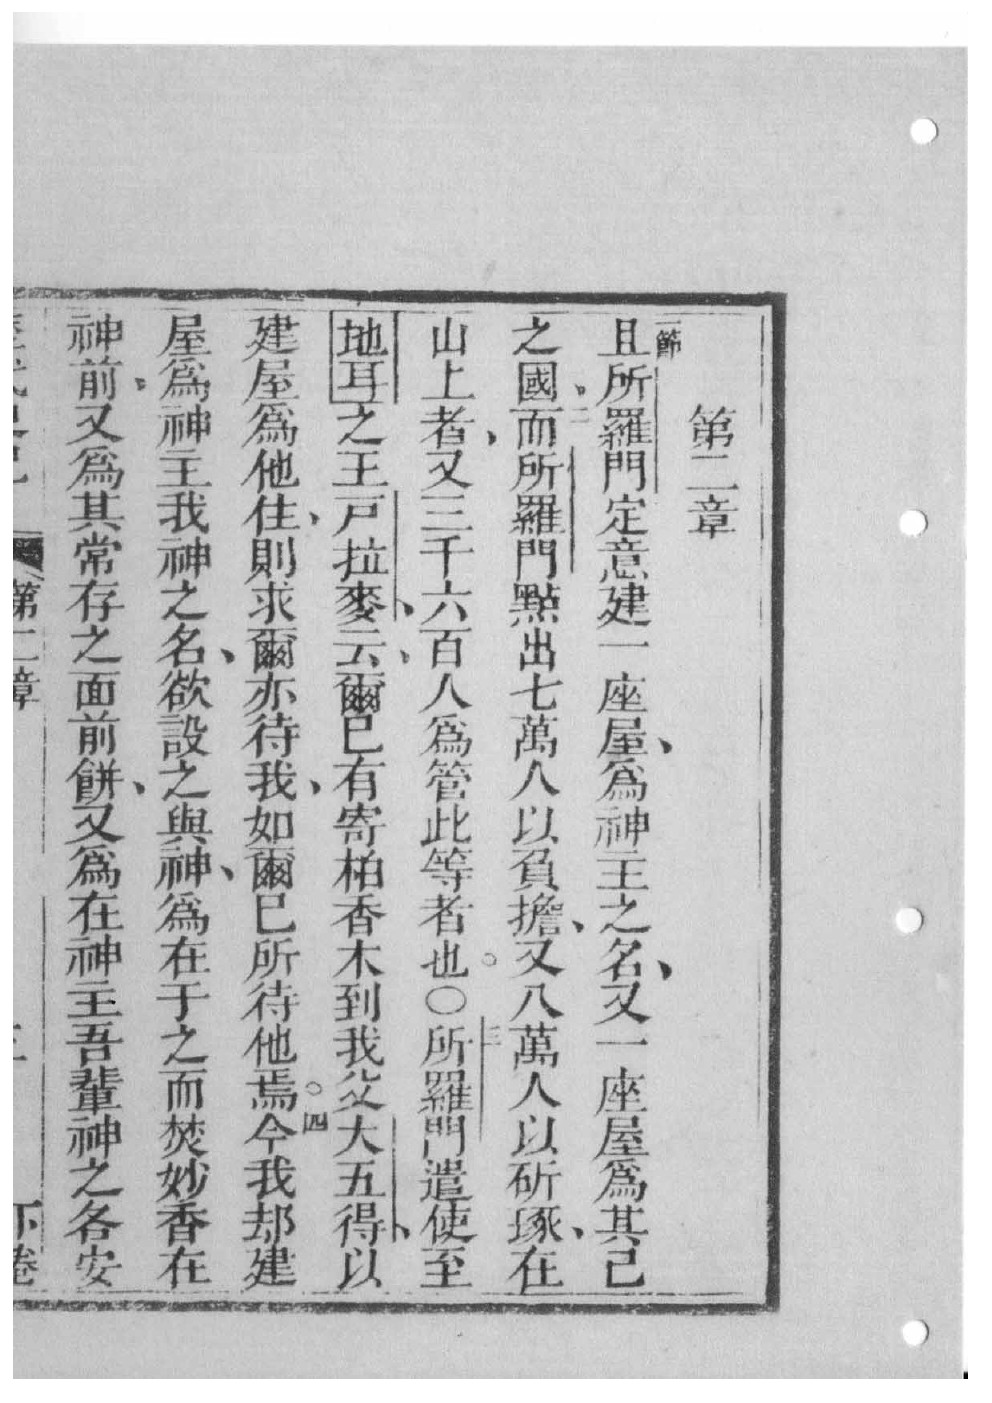 第二章
一節且所羅門定意建一座屋、爲神王之名、又一座屋爲其己
之國、二而所羅門點出七萬人以負擔、又八萬人以斫琢、在
山上者、又三千六百人爲管此等者也。〇三所羅門遣使至
地耳之王戸拉麥、云、爾已有寄柏香木到我父大五得、以
建屋爲他住、則求爾亦待我、如爾已所待他焉。四今我却建
屋爲神主我神之名、欲設之與神、爲在于之而焚妙香在
神前、又爲其常存之面前餅、又爲在神主吾輩神之各安
第二章
三
下卷